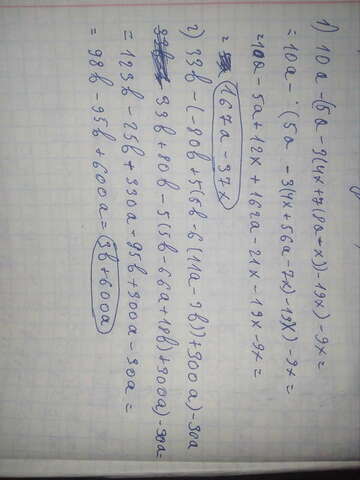 1) 10a - (5a - 3(4x + 7(8a + x)) - 19x) - 9x =
= 10a - (5a - 3(4x + 56a - 7x) - 19x) - 9x =
= 10a - 5a + 12x + 162a - 21x - 19x - 9x =
= 167a - 37x
2) 33b - (-80b + 5(5b - 6(11a - 9b)) + 300a) - 30a
33b + 80b - 5(5b - 66a + 18b) + 300a) - 30a =
= 123b - 25b + 330a - 95b + 300a - 30a =
= 98b - 95b + 600a = 3b + 600a